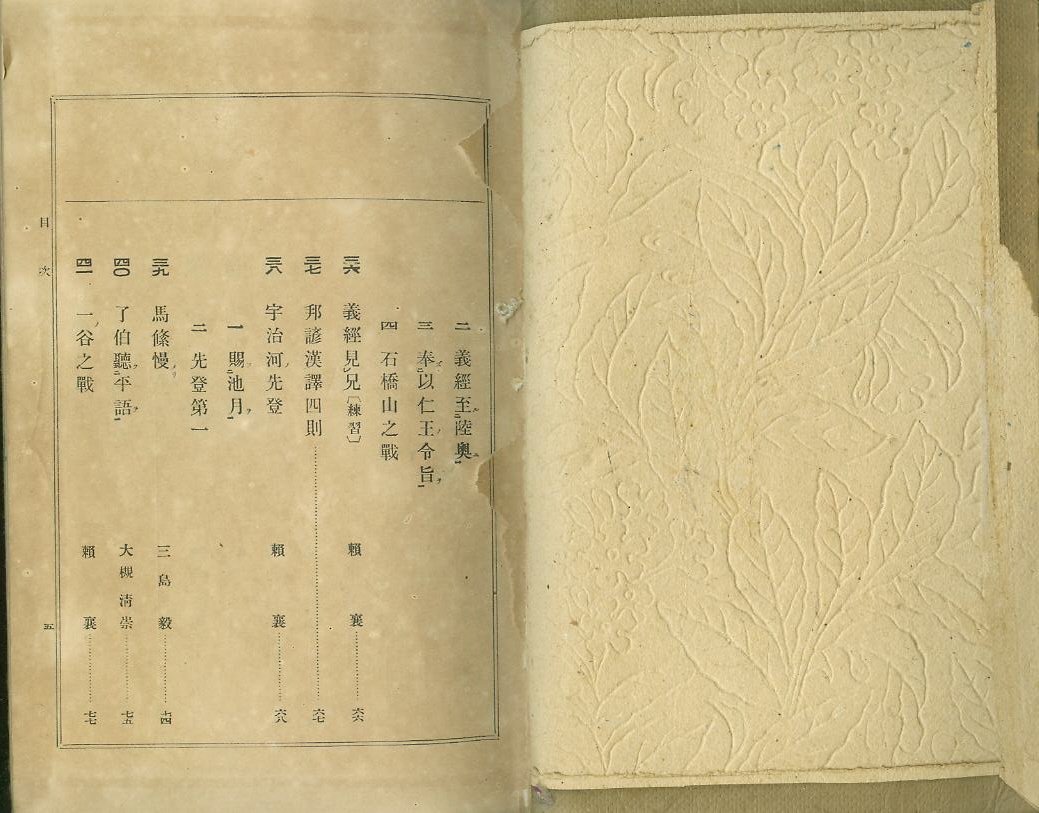 二 義經至陸奧
三 奉以仁王令旨
四 石橋山之戰
三六 義經見兄〔練習〕 賴襄 六六
三七 邦諺漢譯四則 六七
三八 宇治河先登 賴襄 六八
一 賜池月
二 先登第一
三九 馬條慢 三島毅 七四
四〇 了伯聽平語 大槻淸崇 七五
四一 一谷之戰 賴襄 七七
目次
五